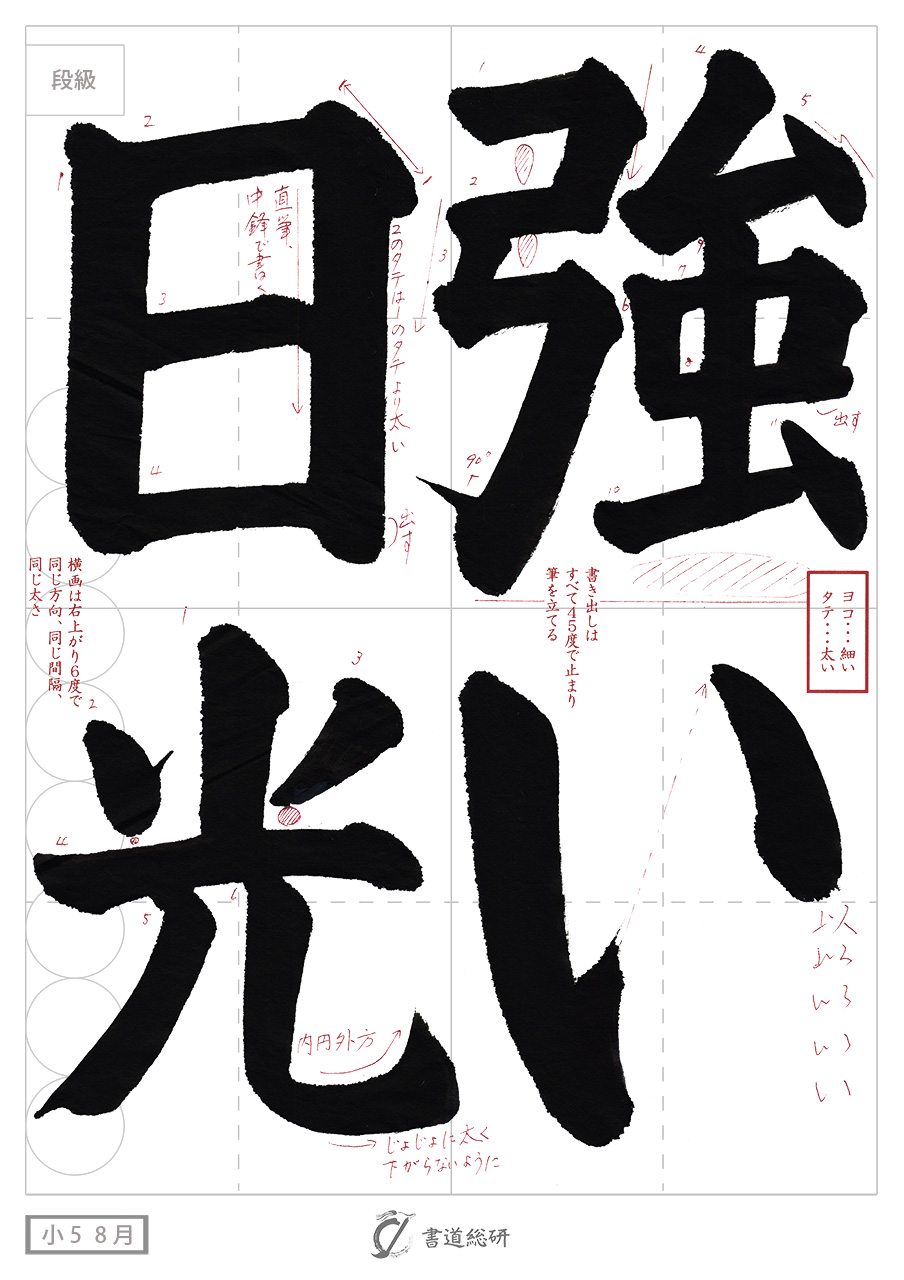 強い
日光
段級
1
2
3
4
5
6
7
8
9
10
11
出す
90°
1
2
3
4
直筆、
中鋒で書く
2のタテは1のタテより太い
出す
ヨコ・・・細い
タテ・・・太い
書き出しは
すべて45度で止まり
筆を立てる
横画は右上がり6度で
同じ方向、同じ間隔、
同じ太さ
1
2
3
4
5
6
内円外方
じょじょに太く
下がらないように
以
い
小5 8月
書道総研